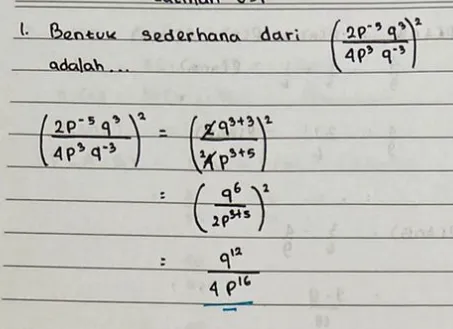 1. Bentuk sederhana dari (2p⁻⁵ q³ / 4p³ q⁻³)²
adalah...
(2p⁻⁵ q³ / 4p³ q⁻³)² = (2q³⁺³ / ²4p³⁺⁵)²
= (q⁶ / 2p³⁺⁵)²
= q¹² / 4p¹⁶